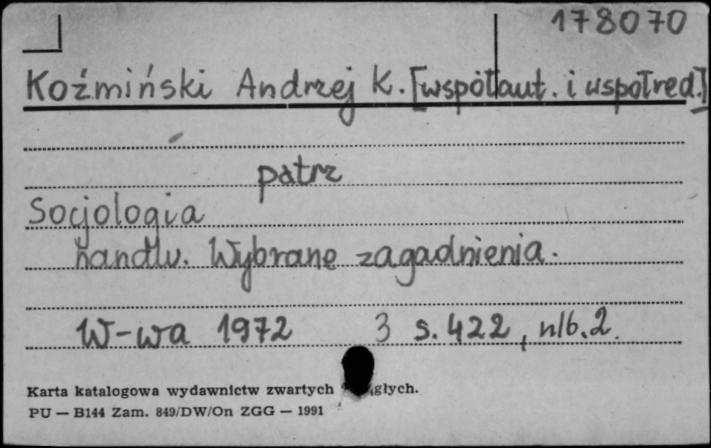 178070
Koźmiński Andrzej K. [współaut. i współred.]
patrz
Socjologia
handlu. Wybrane zagadnienia.
W-wa 1972 3 s. 422, nlb. 2.
Karta katalogowa wydawnictw zwartych
PU — B144 Zam. 849/DW/On ZGG — 1991